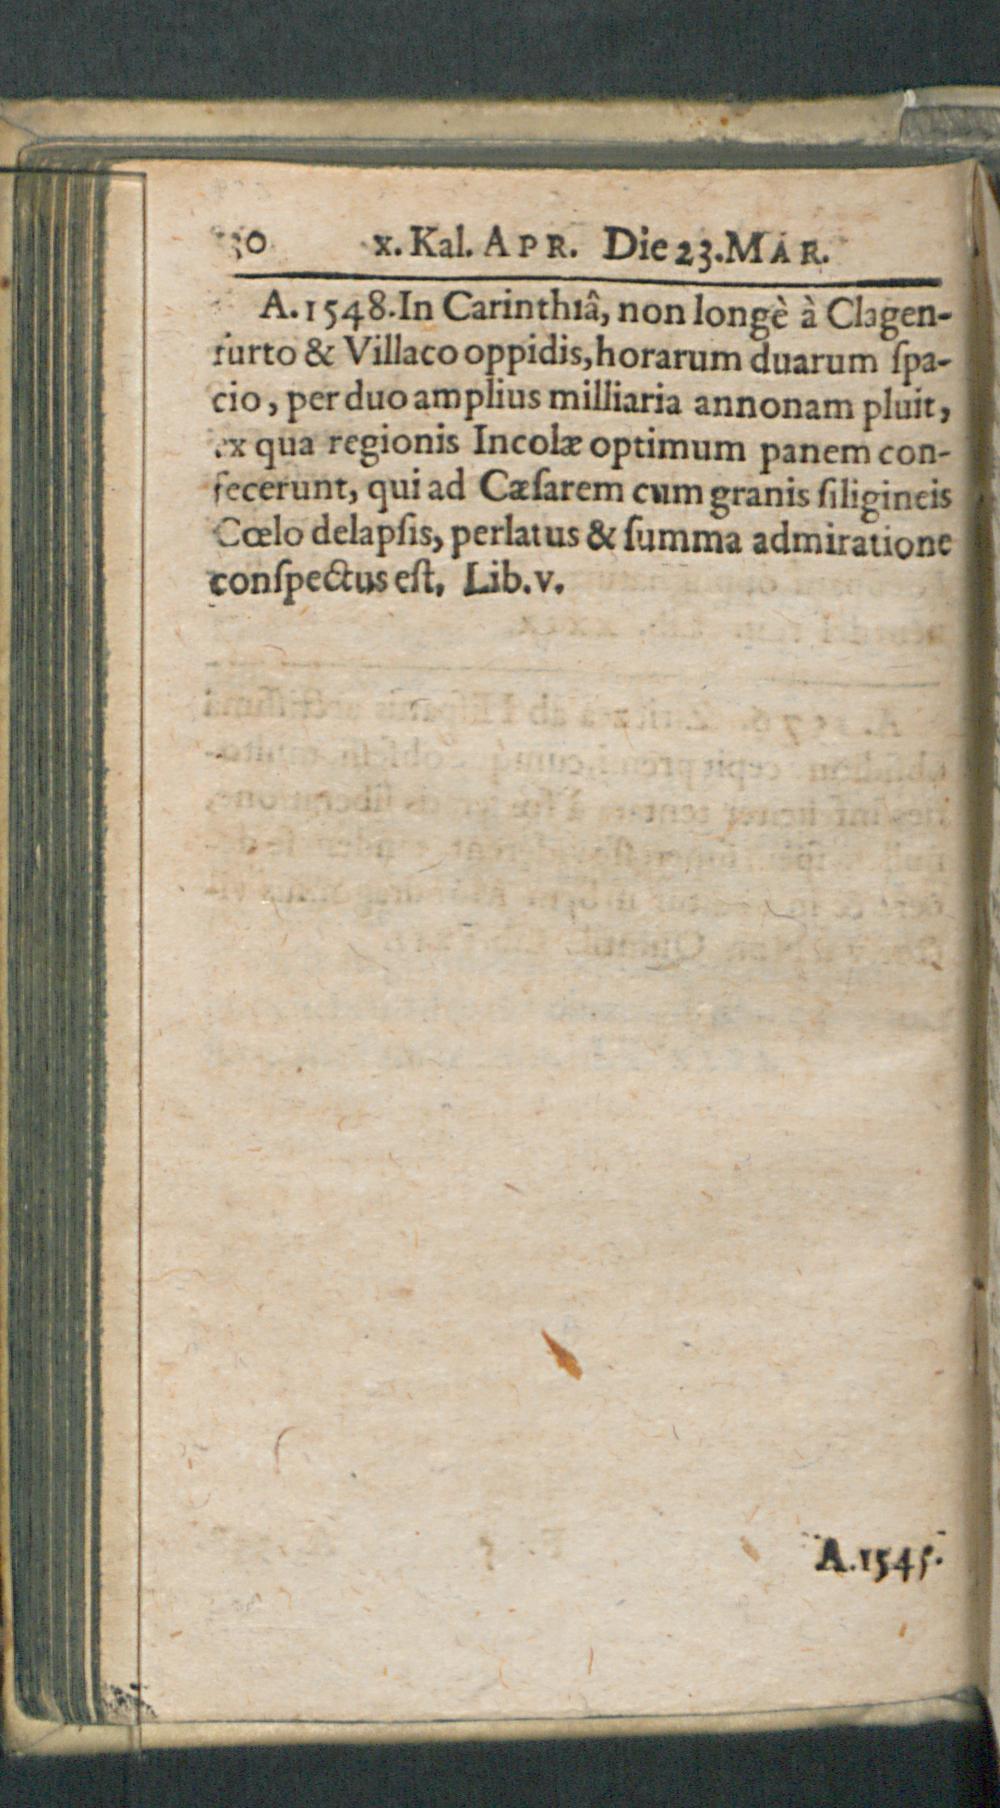 30 x. Kal. APR. Die 23. MAR.
A. 1548. In Carinthiâ, non longè à Clagen-
furto & Villaco oppidis, horarum duarum ſpa-
cio, per duo amplius milliaria annonam pluit,
ex qua regionis Incolæ optimum panem con-
fecerunt, qui ad Cæſarem cum granis ſiligineis
Cœlo delapſis, perlatus & ſumma admiratione
conſpectus eſt. Lib. v.
A. 1545.